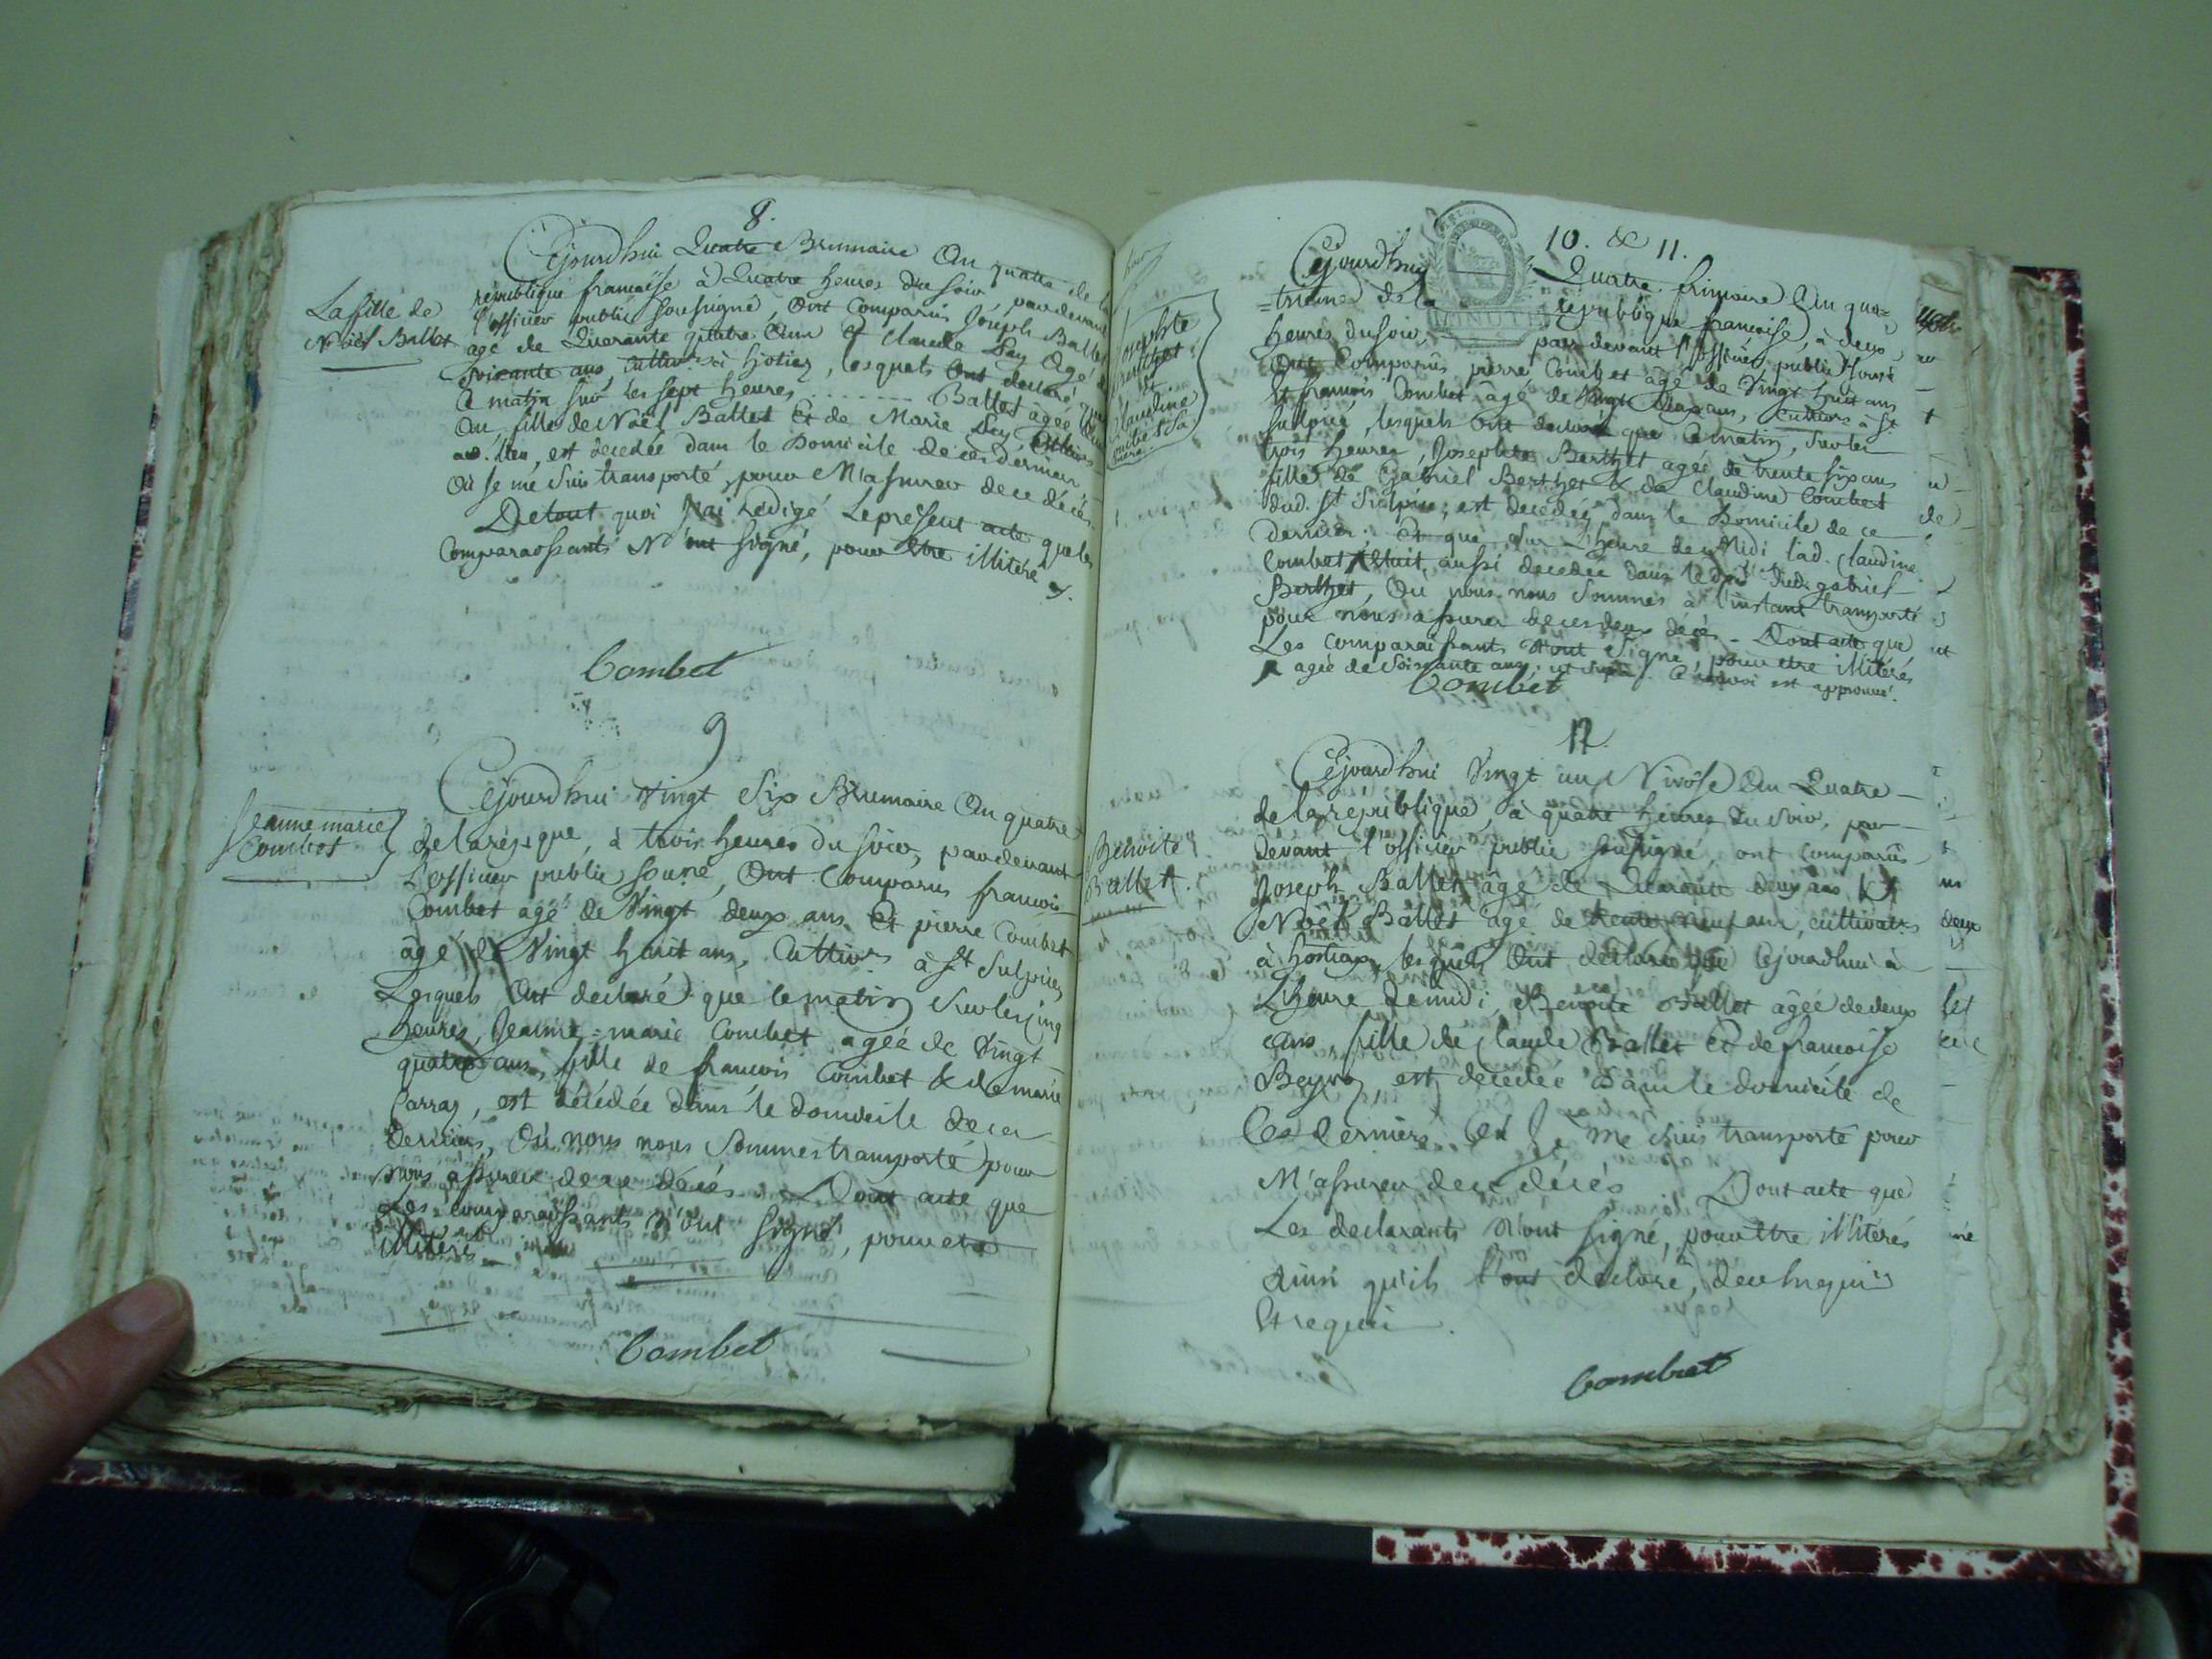 8.
Cejourdhui Quatre Brumaire An quatre de la
république françaîse à Quatre heures du soir, pardevant
l'officier public soussigné, Ont Comparus Joseph Ballet
agé de Quarante quatre Ans Et Claude Agé de
soixante ans cultivrs à hotiaz, lesquels Ont declaré que
Ce matin sur les sept heures ........ Ballet agée
An, fille de Noël Ballet Et de Marie
aud. lieu, est decedée dans le Domicile de ces derniers
Où Je me Suis transporté, pour M'assurer de ce décés
De tout quoi J'ai Redigé Le présent acte que les
Comparaossants N'ont signé, pour être illiteré
La fille de
Noël Ballet
Combet
9
Cejourdhui Vingt Six Brumaire An quatre
de la répque, à trois heures du soir, pardevant
L'officier public souné, Ont Comparus francois
Combet agé de Vingt deux ans Et pierre Combet
âgé de Vingt huit ans, Cultivrs à St Sulpice
Lesquels Ont declaré que le matin Sur les cinq
heures, Jeanne=marie Combet agée de Vingt
quatre ans, fille de francois Combet & de marie
Carraz, est décédée dans le domicile de ces
derniers, Où nous nous Sommes transporté pour
nous assurer de ce décés Dont acte que
Les comparaossants n'ont signé, pour etre
illiteré
Jeanne marie
Combet
Combet
10. & 11.
Cejourdhuy Quatre frimaire An qua=
=trieme de la république francoise, à deux
heures du soir, par devant l'officier public sousé
Ont Comparûs pierre Combet âgé de Vingt huit ans
Et francois Combet âgé de Vingt deux ans, cultivrs à St
Sulpice, lesquels Ont declaré que Ce matin, Sur les
trois heures, Josephte Berthet agée de trente six ans
fille de Gabriel Berthet & de Claudine Combet
dud. St Sulpice, est decedée, dans le Domicile de ce
dernier. Et que sur L'heure de Midi lad. Claudine
Combet était aussi decedée dans le dud. gabriel
Berthet, Où nous nous Sommes à l'instant transporté
pour nous assurer de ces deux décés. Dont acte que
Les comparaissants n'ont Signé, pour etre illiterés
agée de Soixante ans Ce renvoi est approuvé.
Josephte
Berthet
et
Claudine
Combet Sa
mere.
Combet
12.
Cejourdhui Vingt un Nivôse An Quatre
de la république, à quatre heures du soir, par
devant l'officier public soussigné, ont comparûs
Joseph Ballet âgé de Quarante deux ans Et
Noël Ballet âgé de trente neuf ans, cultivatrs
à hostiaz, lesquels Ont declaré que Cejourdhui à
L'heure de midi, Benoite Ballet âgée de deux
ans, fille de Claude Ballet Et de francoise
Beyna, est decedée dans le domicile de
Ces derniers où Je me suis transporté pour
M'assurer de ce décés Dont acte que
Les declarants N'ont signé, pour être illiterés
ainsi qu'ils l'ont declaré, de ce Enquis
Et requis.
Benoite
Ballet.
Combet